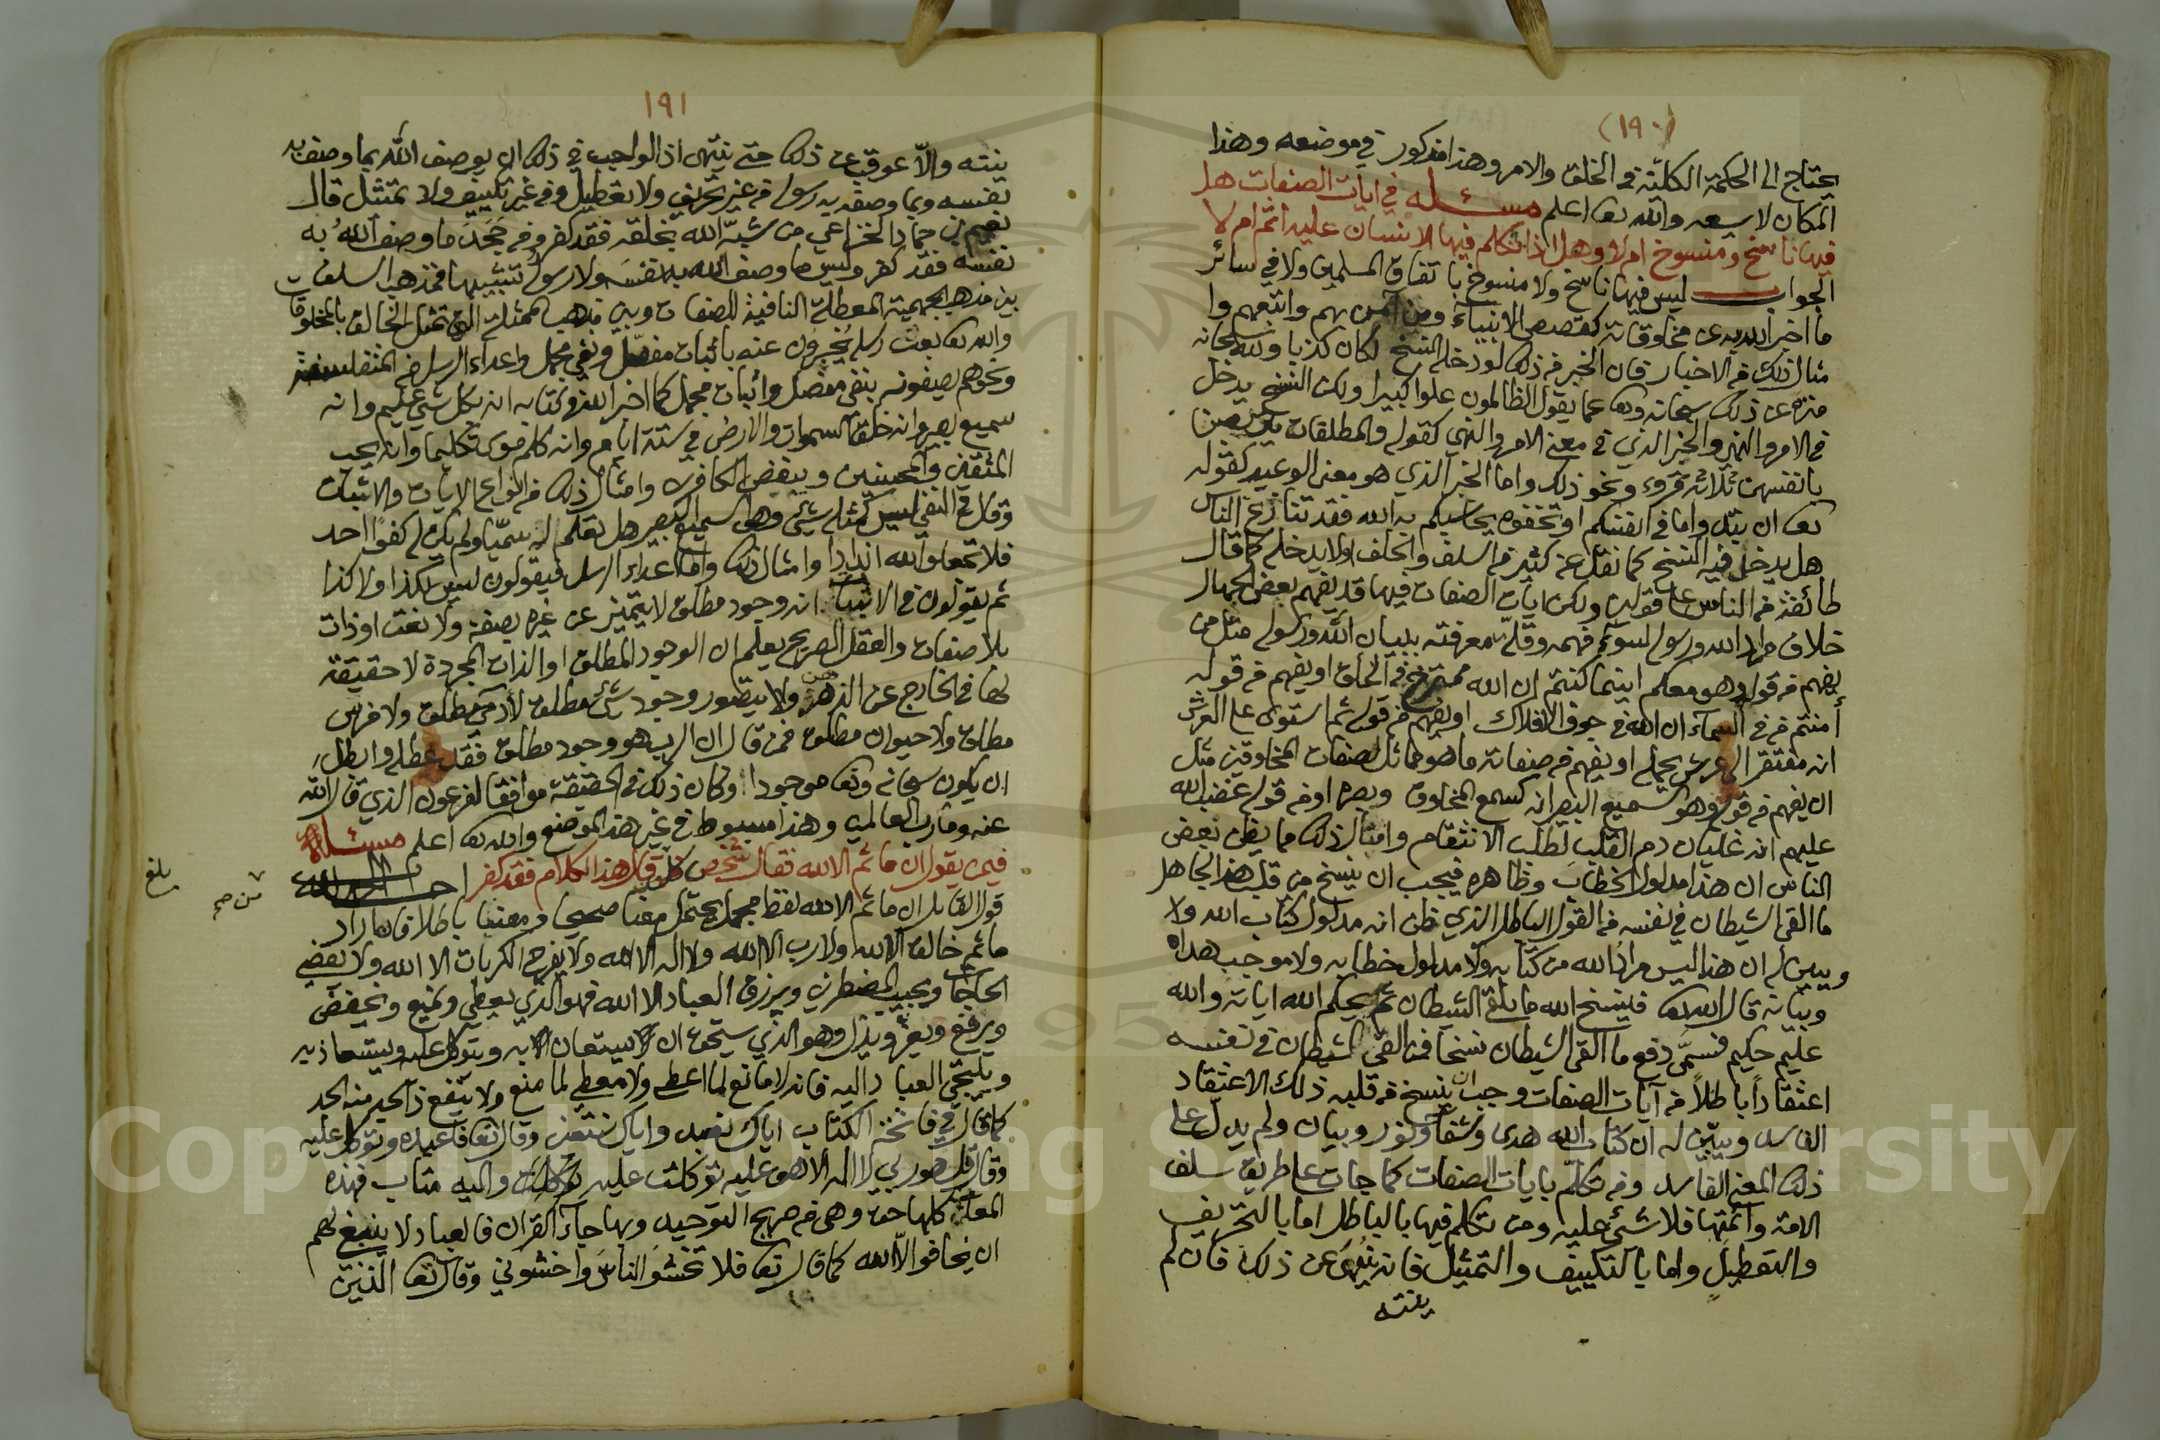 (١٩٠)
يحتاج الى الحكمة الكلية في الخلق والامر وهذا مذكور في موضعه وهذا
المكان لا يسعه والله تعا اعلم مسئله في ايات الصفات هل
فيها ناسخ ومنسوخ ام لا وهل اذا تكلم فيها الانسان عليه اثم ام لا
الجواب ليس فيها ناسخ ولا منسوخ باتفاق المسلمين ولا في سائر
ما اخبر الله به عن مخلوقاته كقصص الانبياء ومن آمن بهم واتبعهم وا
مثال ذلك من الاخبار فان الخبر في ذلك لو دخله النسخ لكان كذبا والله سبحانه
منزه عن ذلك سبحانه وتعا عما يقول الظالمون علوا كبيرا ولكن النسخ يدخل
في الامر والنهي والخبر الذي في معنى الامر والنهي كقوله والمطلقات يتربصن
بانفسهن ثلاثة قروء ونحو ذلك واما الخبر الذي هو معنى الوعيد كقوله
تعا ان تبدوا ما في انفسكم او تخفوه يحاسبكم به الله فقد تنازع الناس
هل يدخل فيه النسخ كما نقل عن كثير من السلف والخلف اولا يدخله كما قال
طائفة من الناس على قولين ولكن ايات الصفات فيها قد يفهم بعض الجهال
خلاف مراد الله ورسوله لسوء فهمه وقلة معرفته ببيان الله ورسوله مثل من
يفهم من قوله وهو معكم اينما كنتم ان الله ممتزج في الخلق او يفهم من قوله
أمنتم من في السماء ان الله في جوف الافلاك او يفهم من قوله ثم استوى على العرش
انه مفتقر الى عرش يحمله او يفهم من صفاته ما هو مماثل لصفات المخلوقين مثل
ان يفهم من قوله وهو السميع البصير انه كسمع المخلوق وبصره او من قوله غضب الله
عليهم انه غليان دم القلب لطلب الانتقام وامثال ذلك مما يظن بعض
الناس ان هذا مدلول الخطاب وظاهره فيجب ان ينسخ من قلب هذا الجاهل
ما القى الشيطان في نفسه من القول الباطل الذي ظن انه مدلول كتاب الله ولا
ويبين له ان هذا ليس مراد الله من كتابه ولا مدلول خطابه ولا موجب هداه
وبيانه قال الله تعا فينسخ الله ما يلقي الشيطان ثم يحكم الله اياته والله
عليم حكيم فسمى دفع ما القى الشيطان نسخا فمن القى الشيطان في نفسه
اعتقاداً باطلاً من آيات الصفات وجب ان ينسخ من قلبه ذلك الاعتقاد
الفاسد ويبيّن له ان كتاب الله هدى وشفا ونور وبيان ولم يدل على
ذلك المعنى الفاسد ومن تكلم بايات الصفات كما جات على طريق سلف
الامة وائمتها فلا شئ عليه ومن تكلم فيها بالباطل اما بالتحريف
والتعطيل واما بالتكييف والتمثيل فانه يُنهى عن ذلك فان لم
ينته
١٩١
ينته والّا عوقب على ذلك حتى ينتهى اذ الواجب في ذلك ان يوصف الله بما وصف به
نفسه وبما وصفه به رسوله من غير تحريف ولا تعطيل ومن غير تكييف ولا تمثيل قال
نعيم بن حماد الخزاعي من شبّه الله بخلقه فقد كفر ومن جَحدَ ما وصف الله به
نفسه فقد كفر وليس ما وصف الله به نفسه ولا رسوله تشبيها فمذهب السلف
بين مذهب الجهمية المعطلة النافية للصفات وبين مذهب الممثلة التي تمثل الخالق بالمخلوقات
والله تعا بعث رسله يُخبرون عنه باثبات مفصّل ونفي مجمل واعداء الرسل من المتفلسفة
ونحوهم يصفونه بنفي مفصل واثبات مجمل كما اخبر الله في كتابه انه بكل شي عليم وانه
سميع بصير وانه خلق السموات والارض في ستة ايام وانه كلم موسى تكليما وانه يحب
المتقين والمحسنين ويبغض الكافرين وامثال ذلك من انواع الايات والاثبات
وقال في النفي ليس كمثله شئ وهو السميع البصير هل تعلم له سميّا ولم يكن له كفوًا احد
فلا تجعلوا لله اندادا وامثال ذلك واما اعداء الرسل فيقولون ليس بكذا ولا كذا
ثم يقولون في الاثبات انه وجود مطلق لا يتميز عن غيره بصفة ولا نعت او ذات
بلا صفات والعقل الصريح يعلم ان الوجود المطلق او الذات المجردة لا حقيقة
لها في الخارج عن الذهن ولا يتصور وجود شئ مطلق لا آدمى مطلق ولا فرس
مطلق ولا حيوان مطلق فمن قال ان الرب هو وجود مطلق فقد عطله وابطل
ان يكون سبحانه وتعا موجودا وكان ذلك في الحقيقة موافقا لفرعون الذي قال الله
عنه وما رب العالمين وهذا مبسوط في غير هذا الموضع والله تعا اعلم مسئله
فيمن يقول ان ما ثم الا الله فقال شخص كل من قال هذا الكلام فقد كفر الحمد لله
بلغ
قول القايل ان ما ثم الا الله لفظ مجمل يحتمل معنا صحيحا ومعنا باطلا فان اراد
ما ثم خالق الا الله ولا رب الا الله ولا اله الا الله ولا يفرج الكربات الا الله ولا يقضي
الحاجات ويجيب المضطرين ويرزق العباد الا الله فهو الذي يعطي ويمنع ويخفض
ويرفع ويعز ويذل وهو الذي يستحق ان لا يستعان الا به ويتوكل عليه ويستعاذ به
ويلتجئ العباد اليه فانه لا مانع لما اعطى ولا معطي لما منع ولا ينفع ذا الجد منه الجد
كما قال في فاتحة الكتاب اياك نعبد واياك نستعين وقال تعا فاعبده وتوكل عليه
وقال قل هو ربي لا اله الا هو عليه توكلت واليه متاب فهذه
المعاني كلها حق وهي من صريح التوحيد وبها جاء القرآن فالعباد لا ينبغي لهم
ان يخافوا الّا الله كما قال تعا فلا تخشو الناسَ واخشوني وقال تعا الذين